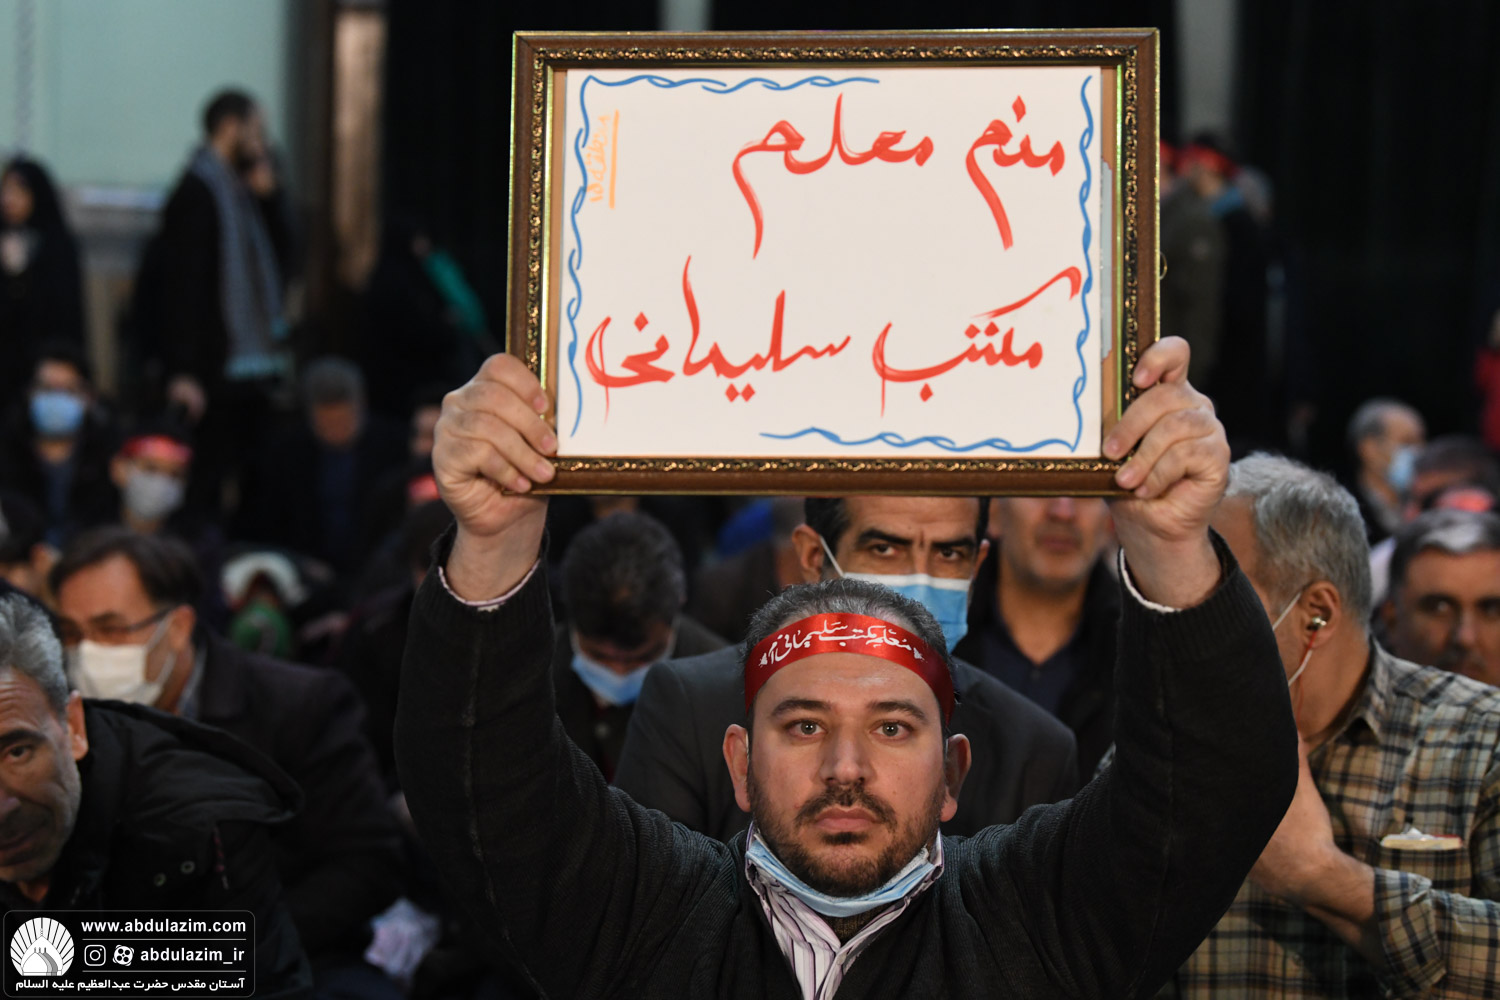 منم معلم
مکتب سلیمانی
معلم مکتب سلیمانی ام
www.abdulazim.com
abdulazim_ir
آستان مقدس حضرت عبدالعظیم علیه السلام